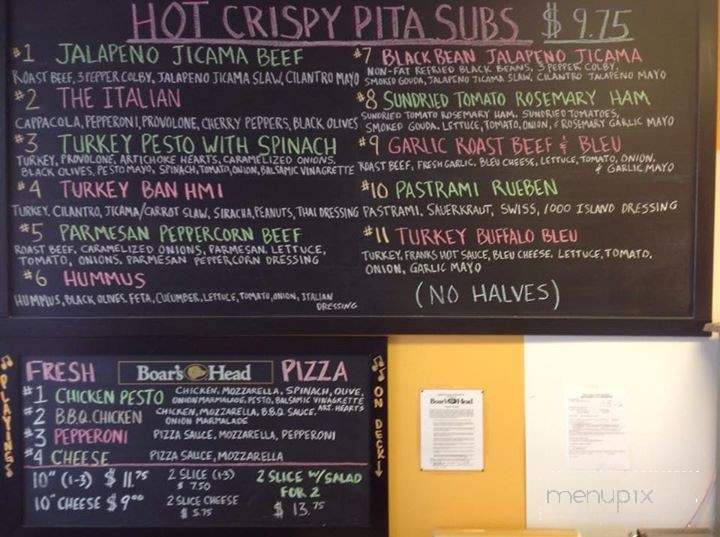 HOT CRISPY PITA SUBS $9.75
#1 JALAPENO JICAMA BEEF
ROAST BEEF, 3 PEPPER COLBY, JALAPENO JICAMA SLAW, CILANTRO MAYO
#2 THE ITALIAN
CAPPACOLA, PEPPERONI, PROVOLONE, CHERRY PEPPERS, BLACK OLIVES
#3 TURKEY PESTO WITH SPINACH
TURKEY, PROVOLONE, ARTICHOKE HEARTS, CARAMELIZED ONIONS,
BLACK OLIVES, PESTO MAYO, SPINACH, TOMATO, ONION, BALSAMIC VINAGRETTE
#4 TURKEY BAN HMI
TURKEY, CILANTRO, JICAMA/CARROT SLAW, SIRACHA, PEANUTS, THAI DRESSING
#5 PARMESAN PEPPERCORN BEEF
ROAST BEEF, CARAMELIZED ONIONS, PARMESAN, LETTUCE,
TOMATO, ONIONS, PARMESAN PEPPERCORN DRESSING
#6 HUMMUS
HUMMUS, BLACK OLIVES, FETA, CUCUMBER, LETTUCE, TOMATO, ONION, ITALIAN
DRESSING
#7 BLACK BEAN JALAPENO JICAMA
NON-FAT REFRIED BLACK BEANS, 3 PEPPER COLBY,
SMOKED GOUDA, JALAPENO JICAMA SLAW, CILANTRO JALAPENO MAYO
#8 SUNDRIED TOMATO ROSEMARY HAM
SUNDRIED TOMATO ROSEMARY HAM, SUNDRIED TOMATOES,
SMOKED GOUDA, LETTUCE, TOMATO, ONION, & ROSEMARY GARLIC MAYO
#9 GARLIC ROAST BEEF & BLEU
ROAST BEEF, FRESH GARLIC, BLEU CHEESE, LETTUCE, TOMATO, ONION,
& GARLIC MAYO
#10 PASTRAMI RUEBEN
PASTRAMI, SAUERKRAUT, SWISS, 1000 ISLAND DRESSING
#11 TURKEY BUFFALO BLEU
TURKEY, FRANKS HOT SAUCE, BLEU CHEESE, LETTUCE, TOMATO,
ONION, GARLIC MAYO
(NO HALVES)
PLAYING
FRESH Boar's Head PIZZA
#1 CHICKEN PESTO CHICKEN, MOZZARELLA, SPINACH, OLIVE,
ONION MARMALADE, PESTO, BALSAMIC VINAGRETTE
ART. HEARTS
#2 B.B.Q. CHICKEN CHICKEN, MOZZARELLA, B.B.Q. SAUCE,
ONION MARMALADE
#3 PEPPERONI PIZZA SAUCE, MOZZARELLA, PEPPERONI
#4 CHEESE PIZZA SAUCE, MOZZARELLA
10" (1-3) $11.75
10" CHEESE $9.00
2 SLICE (1-3)
$7.50
2 SLICE CHEESE
$5.75
2 SLICE W/SALAD
FOR 2
$13.75
ON DECK
Boar's Head
menupix